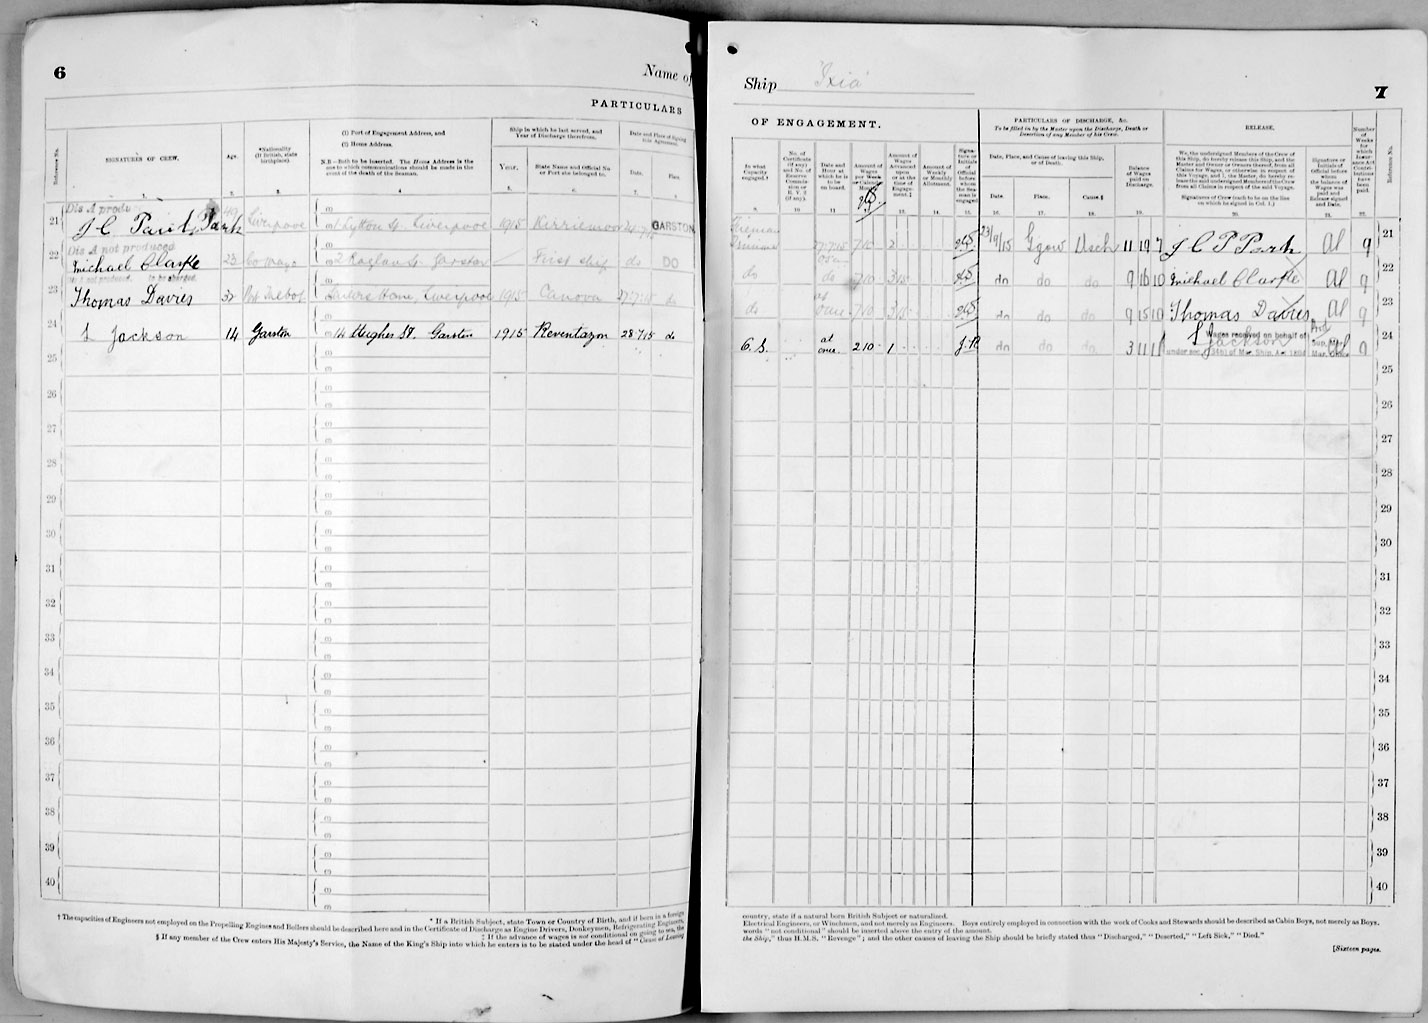 6
Name of
PARTICULARS
Reference No.
SIGNATURES OF CREW.
Age.
*Nationality
(If British, state
birthplace).
(1) Port of Engagement Address, and
(2) Home Address.
N.B.—Both to be inserted. The Home Address is the
one to which communications should be made in the
event of the death of the Seaman.
Ship in which he last served, and
Year of Discharge therefrom.
Year.
State Name and Official No.
or Port she belonged to.
Date and Place of Signing
this Agreement.
Date.
Place.
1.
2.
3.
4
5.
6.
7.
21
Dis A
J C
Park
Liverpool
Liverpool
1915
GARSTON
22
Dis A not produced
Michael Clarke
23
Co Mayo
2 Raglan St. Garston
First ship
do
DO
23
not produced. to be charged.
Thomas Davies
32
Sailors Home, Liverpool
1915
Canova
27.7.15
do
24
S Jackson
14
Garston
14 Hughes St. Garston
1915
Reventazon
28.7.15
do
25
26
27
28
29
30
31
32
33
34
35
36
37
38
39
40
† The capacities of Engineers not employed on the Propelling Engines and Boilers should be described here and in the Certificate of Discharge as Engine Drivers, Donkeymen, Refrigerating Engineers,
* If a British Subject, state Town or Country of Birth, and if born in a foreign
‡ If the advance of wages is not conditional on going to sea, the
§ If any member of the Crew enters His Majesty's Service, the Name of the King's Ship into which he enters is to be stated under the head of "Cause of Leaving
Ship 'Ixia'
7
OF ENGAGEMENT.
PARTICULARS OF DISCHARGE, &c.
To be filled in by the Master upon the Discharge, Death or
Desertion of any Member of his Crew.
RELEASE.
In what
Capacity
engaged.†
No. of
Certificate
(if any)
and No. of
Reserve
Commission
or
R. V. 2
(if any).
Date and
Hour at
which he is
to be
on board.
Amount of
Wages
per Week
or Calendar
Month.
Amount of
Wages
Advanced
upon
or at the
time of
Engagement.‡
Amount of
Weekly
or Monthly
Allotment.
Signature or
Initials of
Official
before
whom the
Seaman is
engaged
Date, Place, and Cause of leaving this Ship,
or of Death.
Date.
Place.
Cause.§
Balance
of Wages
paid on
Discharge.
We, the undersigned Members of the Crew of
this Ship, do hereby release this Ship, and the
Master and Owner or Owners thereof, from all
Claims for Wages, or otherwise in respect of
this Voyage, and I, the Master, do hereby release
the said undersigned Members of the Crew
from all Claims in respect of the said Voyage.
Signatures of Crew (each to be on the line
on which he signed in Col. 1.)
Signature or
Initials of
Official before
whom
the balance of
Wages was
paid and
Release signed
and Date.
Number
of
Weeks
for
which
Insurance Act
Contributions
have been
paid.
Reference No.
9.
10
11
13.
14.
15.
16.
17.
18.
19.
20.
21.
22.
Fireman
2
23/9/15
11 19 7
J C P Park
Al
9
21
do
do
do
do
do
9 16 10
Michael Clarke
Al
9
22
do
do
do
do
9 15 10
Thomas Davies
Al
9
23
at
once.
2 10 -
1
do
do
do
3 11 11
S Jackson
Wages received on behalf of
under sec.
of Mer. Ship. Act 1894
9
24
25
26
27
28
29
30
31
32
33
34
35
36
37
38
39
40
country, state if a natural born British Subject or naturalized.
Electrical Engineers, or Winchmen, and not merely as Engineers. Boys entirely employed in connection with the work of Cooks and Stewards should be described as Cabin Boys, not merely as Boys.
words "not conditional" should be inserted above the entry of the amount.
the Ship," thus H.M.S. "Revenge"; and the other causes of leaving the Ship should be briefly stated thus "Discharged," "Deserted," "Left Sick," "Died."
[Sixteen pages.